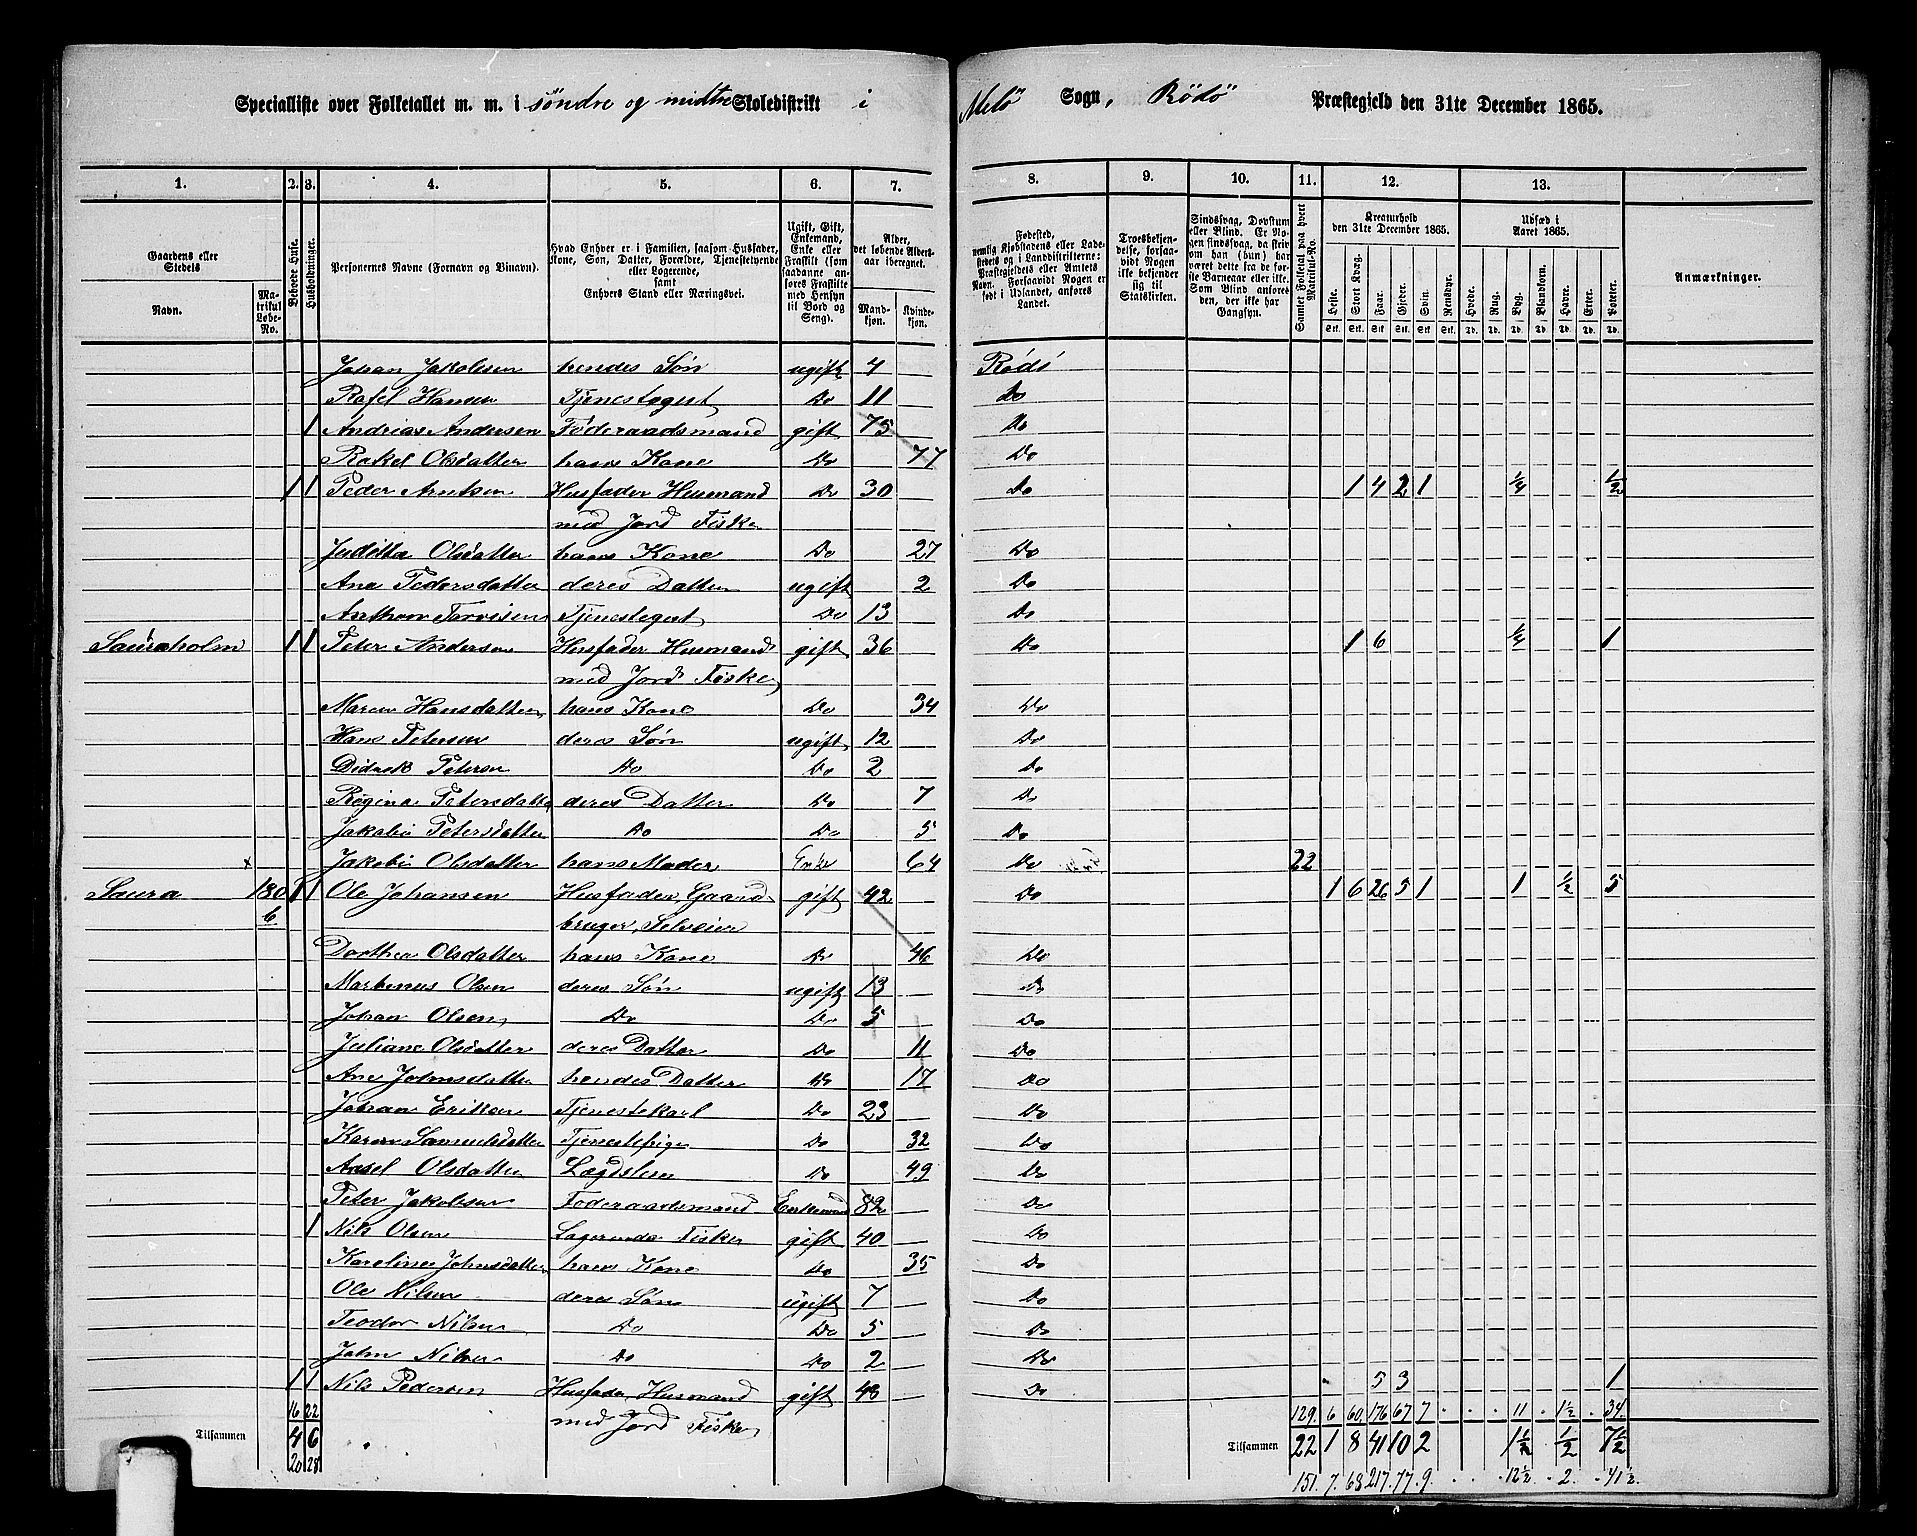 Specialliste over Folketallet m. m. i søndre og midtre Skoledistrikt i Melö Sogn, Rödö Præstegjeld den 31te December 1865.
1. 2. 3. 4. 5. 6. 7. 8. 9. 10. 11. 12. 13.
Gaardens eller Stedets
Navn.
Matrikul Løbe-No.
Beboede Huse.
Husholdninger.
Personernes Navne (Fornavn og Binavn).
Hvad Enhver er i Familien, saasom Husfader, Kone, Søn, Datter, Forældre, Tjenestetyende eller Logerende, samt Enhvers Stand eller Næringsvei.
Ugift, Gift, Enkemand, Enke eller Fraskilt (som saadanne anføres Fraskilte med Hensyn til Bord og Seng).
Alder, det løbende Aldersaar iberegnet.
Mandkjøn. Kvindekjøn.
Fødested, nemlig Kjøbstadens eller Ladestedets og i Landdistrikterne: Præstegjeldets eller Amtets Navn. Forsaavidt Nogen er født i Udlandet, anføres Landet.
Troesbekjendelse, forsaavidt Nogen ikke bekjender sig til Statskirken.
Sindssvag, Døvstum eller Blind. Er Nogen sindssvag, da skriv om han (hun) har været dette fra de første Barneaar eller ikke. Som Blind anføres den, der ikke har Gangsyn.
Samlet Folketal paa hvert Matrikul-No.
Kreaturhold den 31te December 1865.
Heste. Stort Kvæg. Faar. Gjeder. Svin. Rensdyr.
Udsæd i Aaret 1865.
Hvede. Rug. Byg. Blandkorn. Havre. Erter. Poteter.
Anmærkninger.
Johan Jakobsen hendes Søn ugift 4 Rödö
Rafel Hansen Tjenestegut Do 11 Do
1 Andrias Andersen Föderaadsmand gift 75 Do
Rakel Olsdatter hans Kone Do 77 Do
1 1 Peder Arntsen Husfader Husmand Do 30 Do 1 4 2 1 1/4 1/2
med Jord Fisker
Juditta Olsdatter hans Kone Do 27 Do
Ane Pedersdatter deres Datter ugift 2 Do
Anthon Tjenestegut Do 13 Do
Sauraholm 1 1 Peter Andersen Husfader Husmand gift 36 Do 1 6 1/4 1
med Jord Fisker
Maren Hansdatter hans Kone Do 34 Do
Hans Petersen deres Søn ugift 12 Do
Didrek Petersen Do Do 2 Do
Regina Petersdatter deres Datter Do 7 Do
Jakobi Petersdatter Do Do 5 Do
x Jakobi Olsdatter hans Moder Enke 64 Do 22
Saura 180 1 1 Ole Johansen Husfader, Gaard- gift 42 Do 1 6 26 5 1 1 1/2 5
b bruger, Selveier
Dorthea Olsdatter hans Kone Do 46 Do
Martenus Olsen deres Søn ugift 13 Do
Johan Olsen Do Do 5 Do
Juliane Olsdatter deres Datter Do 11 Do
Ane Johnsdatter hendes Datter Do 17 Do
Johan Eriksen Tjenestekarl Do 23 Do
Karen Samuelsdatter Tjenestepige Do 32 Do
Olsdatter Lægdslem Do 49 Do
Peter Jakobsen Föderaadsmand Enkemand 82 Do
1 Nils Olsen Logerende Fisker gift 40 Do
Karoline Johnsdatter hans Kone Do 35 Do
Ole Nilsen deres Søn ugift 7 Do
Teodor Nilsen Do Do 5 Do
John Nilsen Do Do 2 Do
1 1 Nils Pedersen Husfader, Husmand gift 48 Do 5 3 1
med Jord Fisker
16 22 129. 6 60 176 67 7 . . . 11 . 1 1/2 . 34.
Tilsammen 4 6 Tilsammen 22 1 8 41 10 2 1 1/2 1/2 7 1/2
20 28 151. 7. 68 217. 77. 9. . . . 12 1/2 . 2. . 41 1/2.